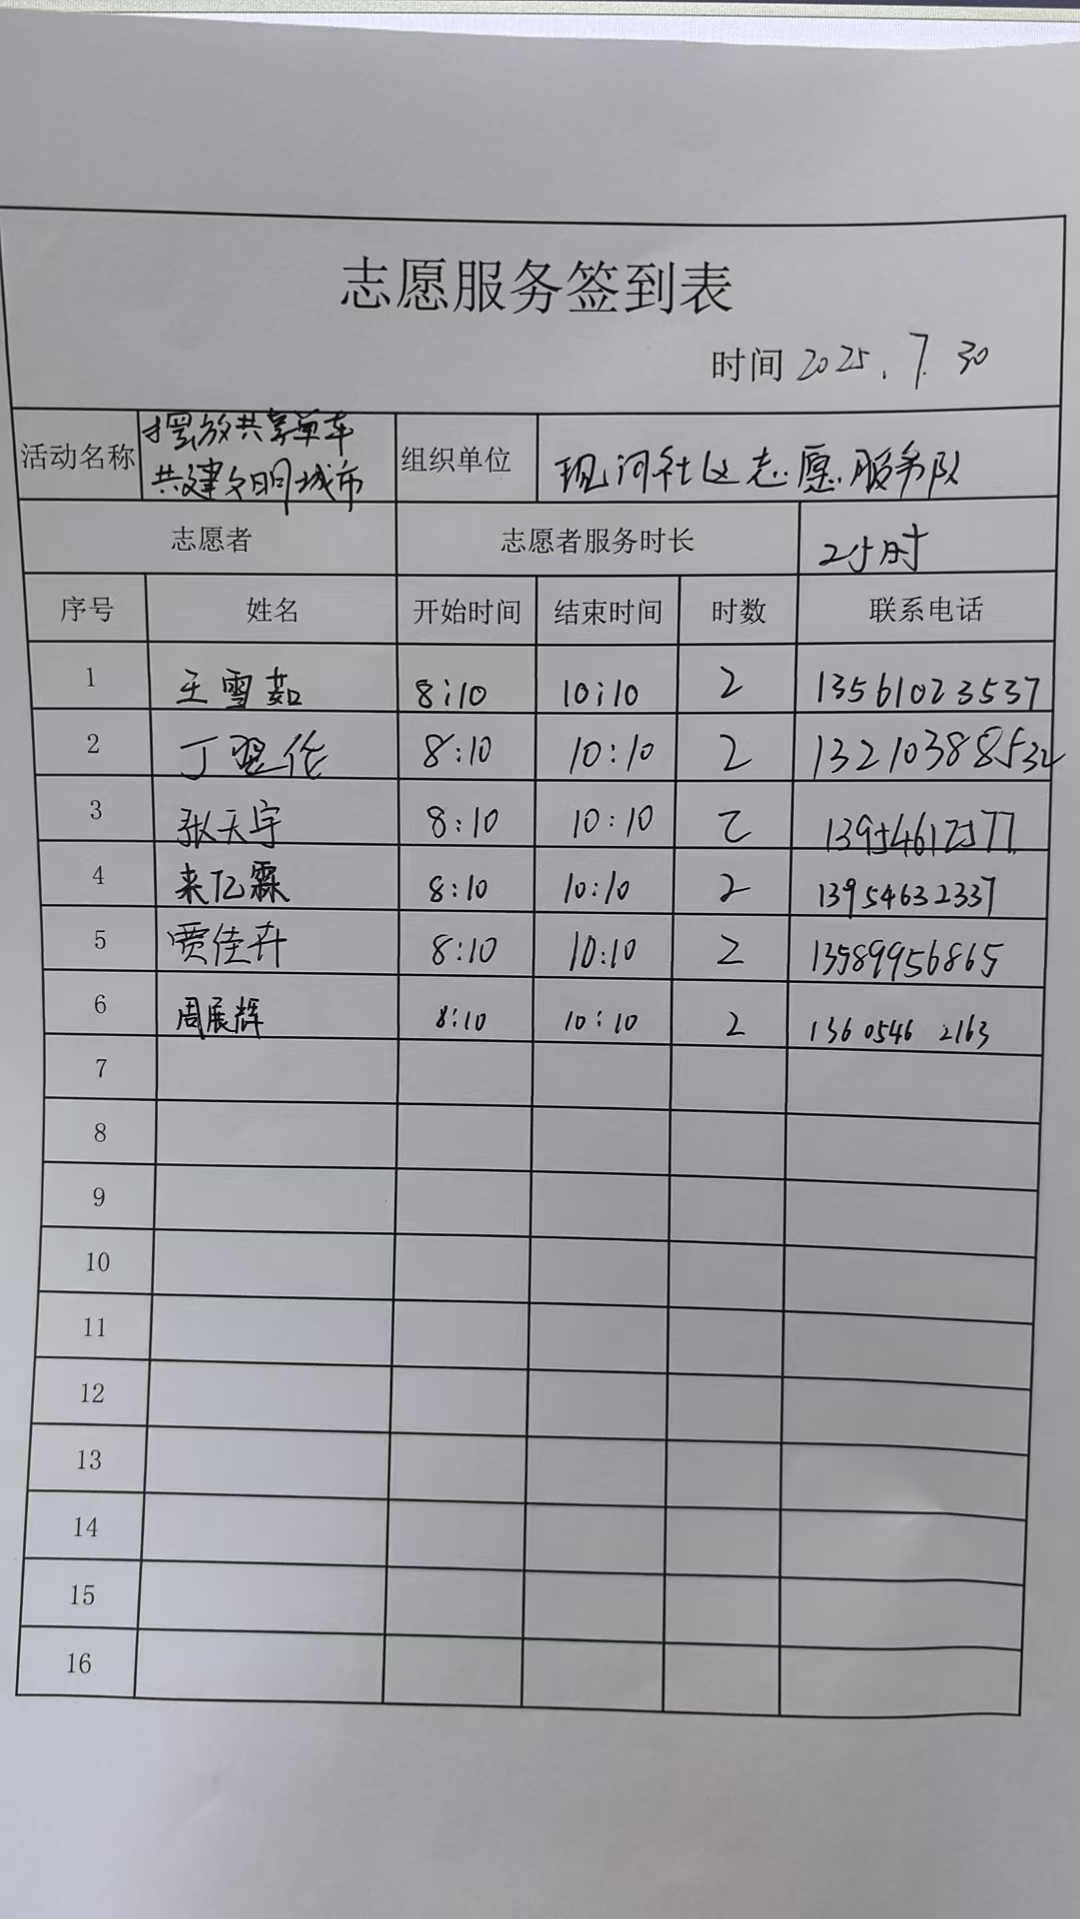 志愿服务签到表
时间 2025.7.30
活动名称 摆放共享单车 共建文明城市 组织单位 现河社区志愿服务队
志愿者 志愿者服务时长 2小时
序号 姓名 开始时间 结束时间 时数 联系电话
1 王雪茹 8:10 10:10 2 13561023537
2 丁翌伦 8:10 10:10 2 13210388532
3 张天宇 8:10 10:10 2 13954612577
4 来亿霖 8:10 10:10 2 13954632337
5 贾佳卉 8:10 10:10 2 13589956865
6 周展辉 8:10 10:10 2 136 0546 2163
7
8
9
10
11
12
13
14
15
16